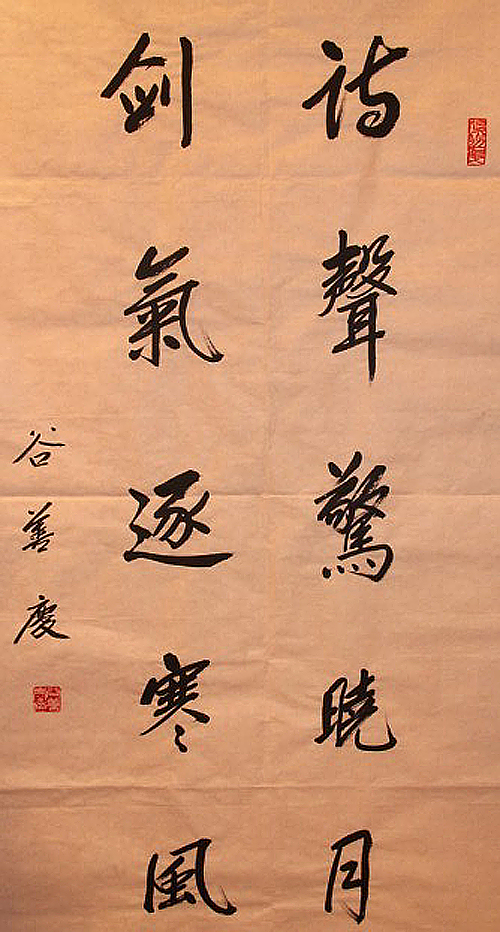 诗聲驚曉月
劍氣逐寒風
谷善慶